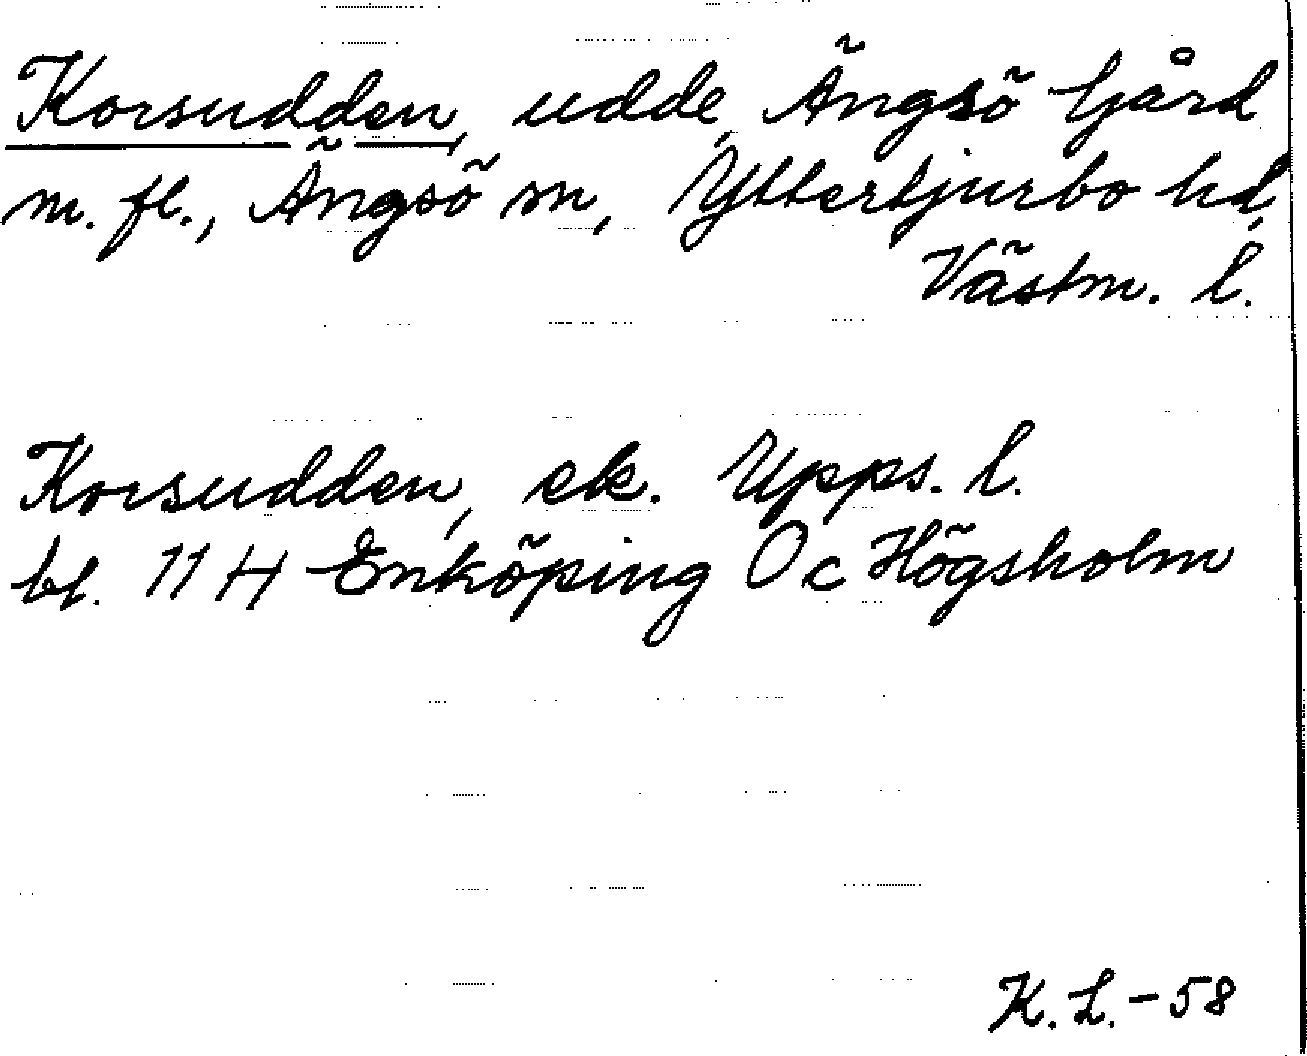 Korsudden, udde, Ängsö gård
m. fl., Ängsö sn, Yttertjurbo hd,
Västm. l.
Korsudden, ek. Upps. l.
bl. 11 H Enköping Oc Högsholm
K. L. - 58